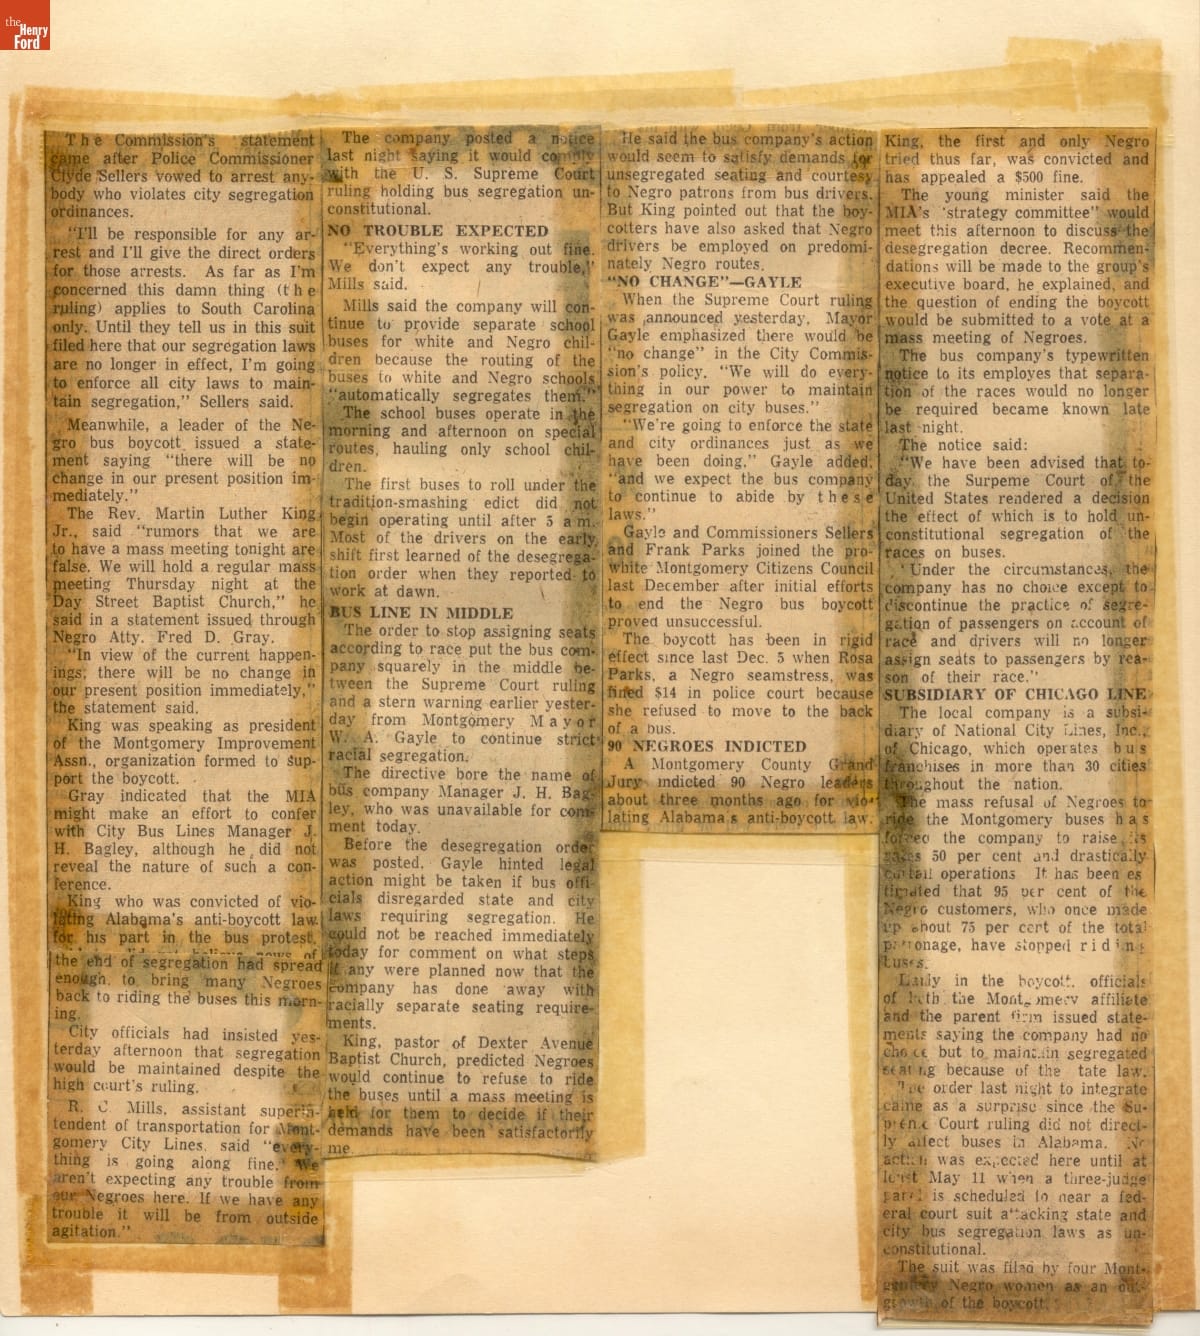 the
Henry
Ford
The Commission's statement
came after Police Commissioner
Clyde Sellers vowed to arrest any-
body who violates city segregation
ordinances.
"I'll be responsible for any ar-
rest and I'll give the direct orders
for those arrests. As far as I'm
concerned this damn thing (the
ruling) applies to South Carolina
only. Until they tell us in this suit
filed here that our segregation laws
are no longer in effect, I'm going
to enforce all city laws to main-
tain segregation," Sellers said.
Meanwhile, a leader of the Ne-
gro bus boycott issued a state-
ment saying "there will be no
change in our present position im-
mediately."
The Rev. Martin Luther King
Jr., said "rumors that we are
to have a mass meeting tonight are
false. We will hold a regular mass
meeting Thursday night at the
Day Street Baptist Church," he
said in a statement issued through
Negro Atty. Fred D. Gray.
"In view of the current happen-
ings, there will be no change in
our present position immediately,"
the statement said.
King was speaking as president
of the Montgomery Improvement
Assn., organization formed to sup-
port the boycott.
Gray indicated that the MIA
might make an effort to confer
with City Bus Lines Manager J.
H. Bagley, although he did not
reveal the nature of such a con-
ference.
King who was convicted of vio-
lating Alabama's anti-boycott law
for his part in the bus protest,
news of
the end of segregation had spread
enough to bring many Negroes
back to riding the buses this morn-
ing.
City officials had insisted yes-
terday afternoon that segregation
would be maintained despite the
high court's ruling.
R. C Mills, assistant superin-
tendent of transportation for Mont-
gomery City Lines, said "every-
thing is going along fine. We
aren't expecting any trouble from
our Negroes here. If we have any
trouble it will be from outside
agitation."
The company posted a notice
last night saying it would comply
with the U. S. Supreme Court
ruling holding bus segregation un-
constitutional.
NO TROUBLE EXPECTED
"Everything's working out fine.
We don't expect any trouble,"
Mills said.
Mills said the company will con-
tinue to provide separate school
buses for white and Negro chil-
dren because the routing of the
buses to white and Negro schools
"automatically segregates them."
The school buses operate in the
morning and afternoon on special
routes, hauling only school chil-
dren.
The first buses to roll under the
tradition-smashing edict did not
begin operating until after 5 a.m.
Most of the drivers on the early
shift first learned of the desegrega-
tion order when they reported to
work at dawn.
BUS LINE IN MIDDLE
The order to stop assigning seats
according to race put the bus com-
pany squarely in the middle be-
tween the Supreme Court ruling
and a stern warning earlier yester-
day from Montgomery Mayor
W. A. Gayle to continue strict
racial segregation.
The directive bore the name of
bus company Manager J. H. Bag-
ley, who was unavailable for com-
ment today.
Before the desegregation order
was posted, Gayle hinted legal
action might be taken if bus offi-
cials disregarded state and city
laws requiring segregation. He
could not be reached immediately
today for comment on what steps
if any were planned now that the
company has done away with
racially separate seating require-
ments.
King, pastor of Dexter Avenue
Baptist Church, predicted Negroes
would continue to refuse to ride
the buses until a mass meeting is
held for them to decide if their
demands have been satisfactorily
me
He said the bus company's action
would seem to satisfy demands for
unsegregated seating and courtesy
to Negro patrons from bus drivers.
But King pointed out that the boy-
cotters have also asked that Negro
drivers be employed on predomi-
nately Negro routes.
"NO CHANGE"—GAYLE
When the Supreme Court ruling
was announced yesterday, Mayor
Gayle emphasized there would be
"no change" in the City Commis-
sion's policy. "We will do every-
thing in our power to maintain
segregation on city buses."
"We're going to enforce the state
and city ordinances just as we
have been doing," Gayle added,
"and we expect the bus company
to continue to abide by these
laws."
Gayle and Commissioners Sellers
and Frank Parks joined the pro-
white Montgomery Citizens Council
last December after initial efforts
to end the Negro bus boycott
proved unsuccessful.
The boycott has been in rigid
effect since last Dec. 5 when Rosa
Parks, a Negro seamstress, was
fined $14 in police court because
she refused to move to the back
of a bus.
90 NEGROES INDICTED
A Montgomery County Grand
Jury indicted 90 Negro leaders
about three months ago for vio-
lating Alabama's anti-boycott law.
King, the first and only Negro
tried thus far, was convicted and
has appealed a $500 fine.
The young minister said the
MIA's 'strategy committee" would
meet this afternoon to discuss the
desegregation decree. Recommen-
dations will be made to the group's
executive board, he explained, and
the question of ending the boycott
would be submitted to a vote at a
mass meeting of Negroes.
The bus company's typewritten
notice to its employes that separa-
tion of the races would no longer
be required became known late
last night.
The notice said:
"We have been advised that to-
day, the Surpeme Court of the
United States rendered a decision
the effect of which is to hold un-
constitutional segregation of the
races on buses.
'Under the circumstances, the
company has no choice except to
discontinue the practice of segre-
gation of passengers on account of
race and drivers will no longer
assign seats to passengers by rea-
son of their race."
SUBSIDIARY OF CHICAGO LINE
The local company is a subsi-
diary of National City Lines, Inc.,
of Chicago, which operates bus
franchises in more than 30 cities
throughout the nation.
The mass refusal of Negroes to
ride the Montgomery buses has
forced the company to raise its
50 per cent and drastically
curtail operations It has been es
timated that 95 per cent of the
Negro customers, who once made
up about 75 per cert of the total
patronage, have stopped riding
buses.
Early in the boycott, officials
of both the Montgomery affiliate
and the parent firm issued state-
ments saying the company had no
choice but to maintain segregated
seating because of the tate law.
The order last night to integrate
came as a surprise since the Su-
preme Court ruling did not direct-
ly affect buses in Alabama. No
action was expected here until at
least May 11 when a three-judge
panel is scheduled to near a fed-
eral court suit attacking state and
city bus segregation laws as un-
constitutional.
The suit was filed by four Mont-
gomery Negro women as an out-
growth of the boycott.